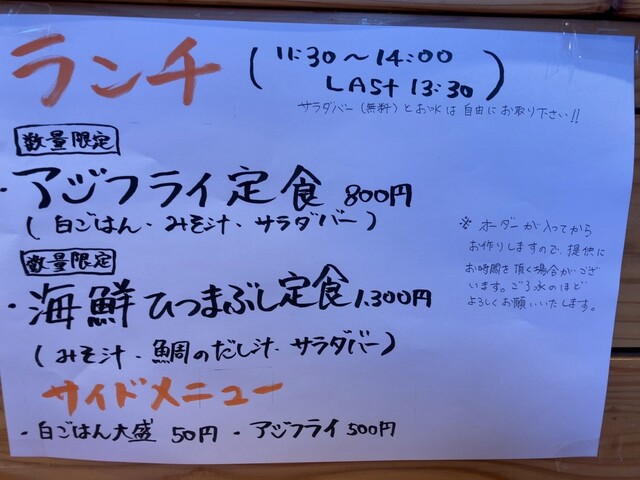 ランチ (11:30～14:00
LAST 13:30)
サラダバー(無料)とお水は自由にお取り下さい!!
数量限定
・アジフライ定食 800円
(白ごはん・みそ汁・サラダバー)
数量限定
・海鮮ひつまぶし定食 1,300円
(みそ汁・鯛のだし汁・サラダバー)
※オーダーが入ってから
お作りしますので、提供に
お時間を頂く場合がござ
います。ご了承のほど
よろしくお願いいたします。
サイドメニュー
・白ごはん大盛 50円 ・アジフライ 500円